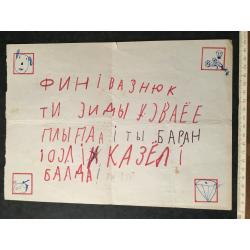 ФИНІВАЗНЮК
ТИ ЭИДЫ УЭВАЁЕ
ПЛЫПАА І ТЫ БАРАН
КАЗЁЛ І
БАЛДА!